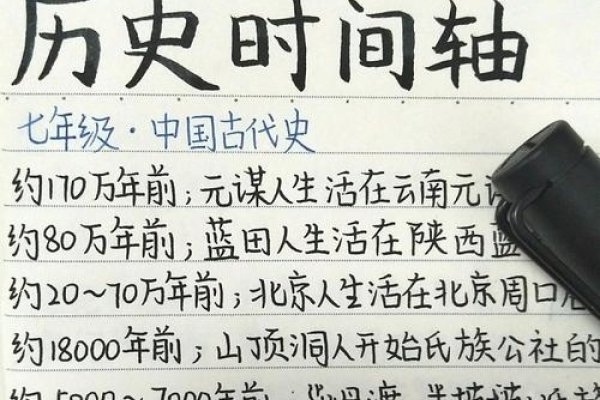 历史时间轴
七年级·中国古代史
约170万年前；元谋人生活在云南元
约80万年前；蓝田人生活在陕西蓝
约20~70万年前；北京人生活在北京周口
约18000年前；山顶洞人开始氏族公社的